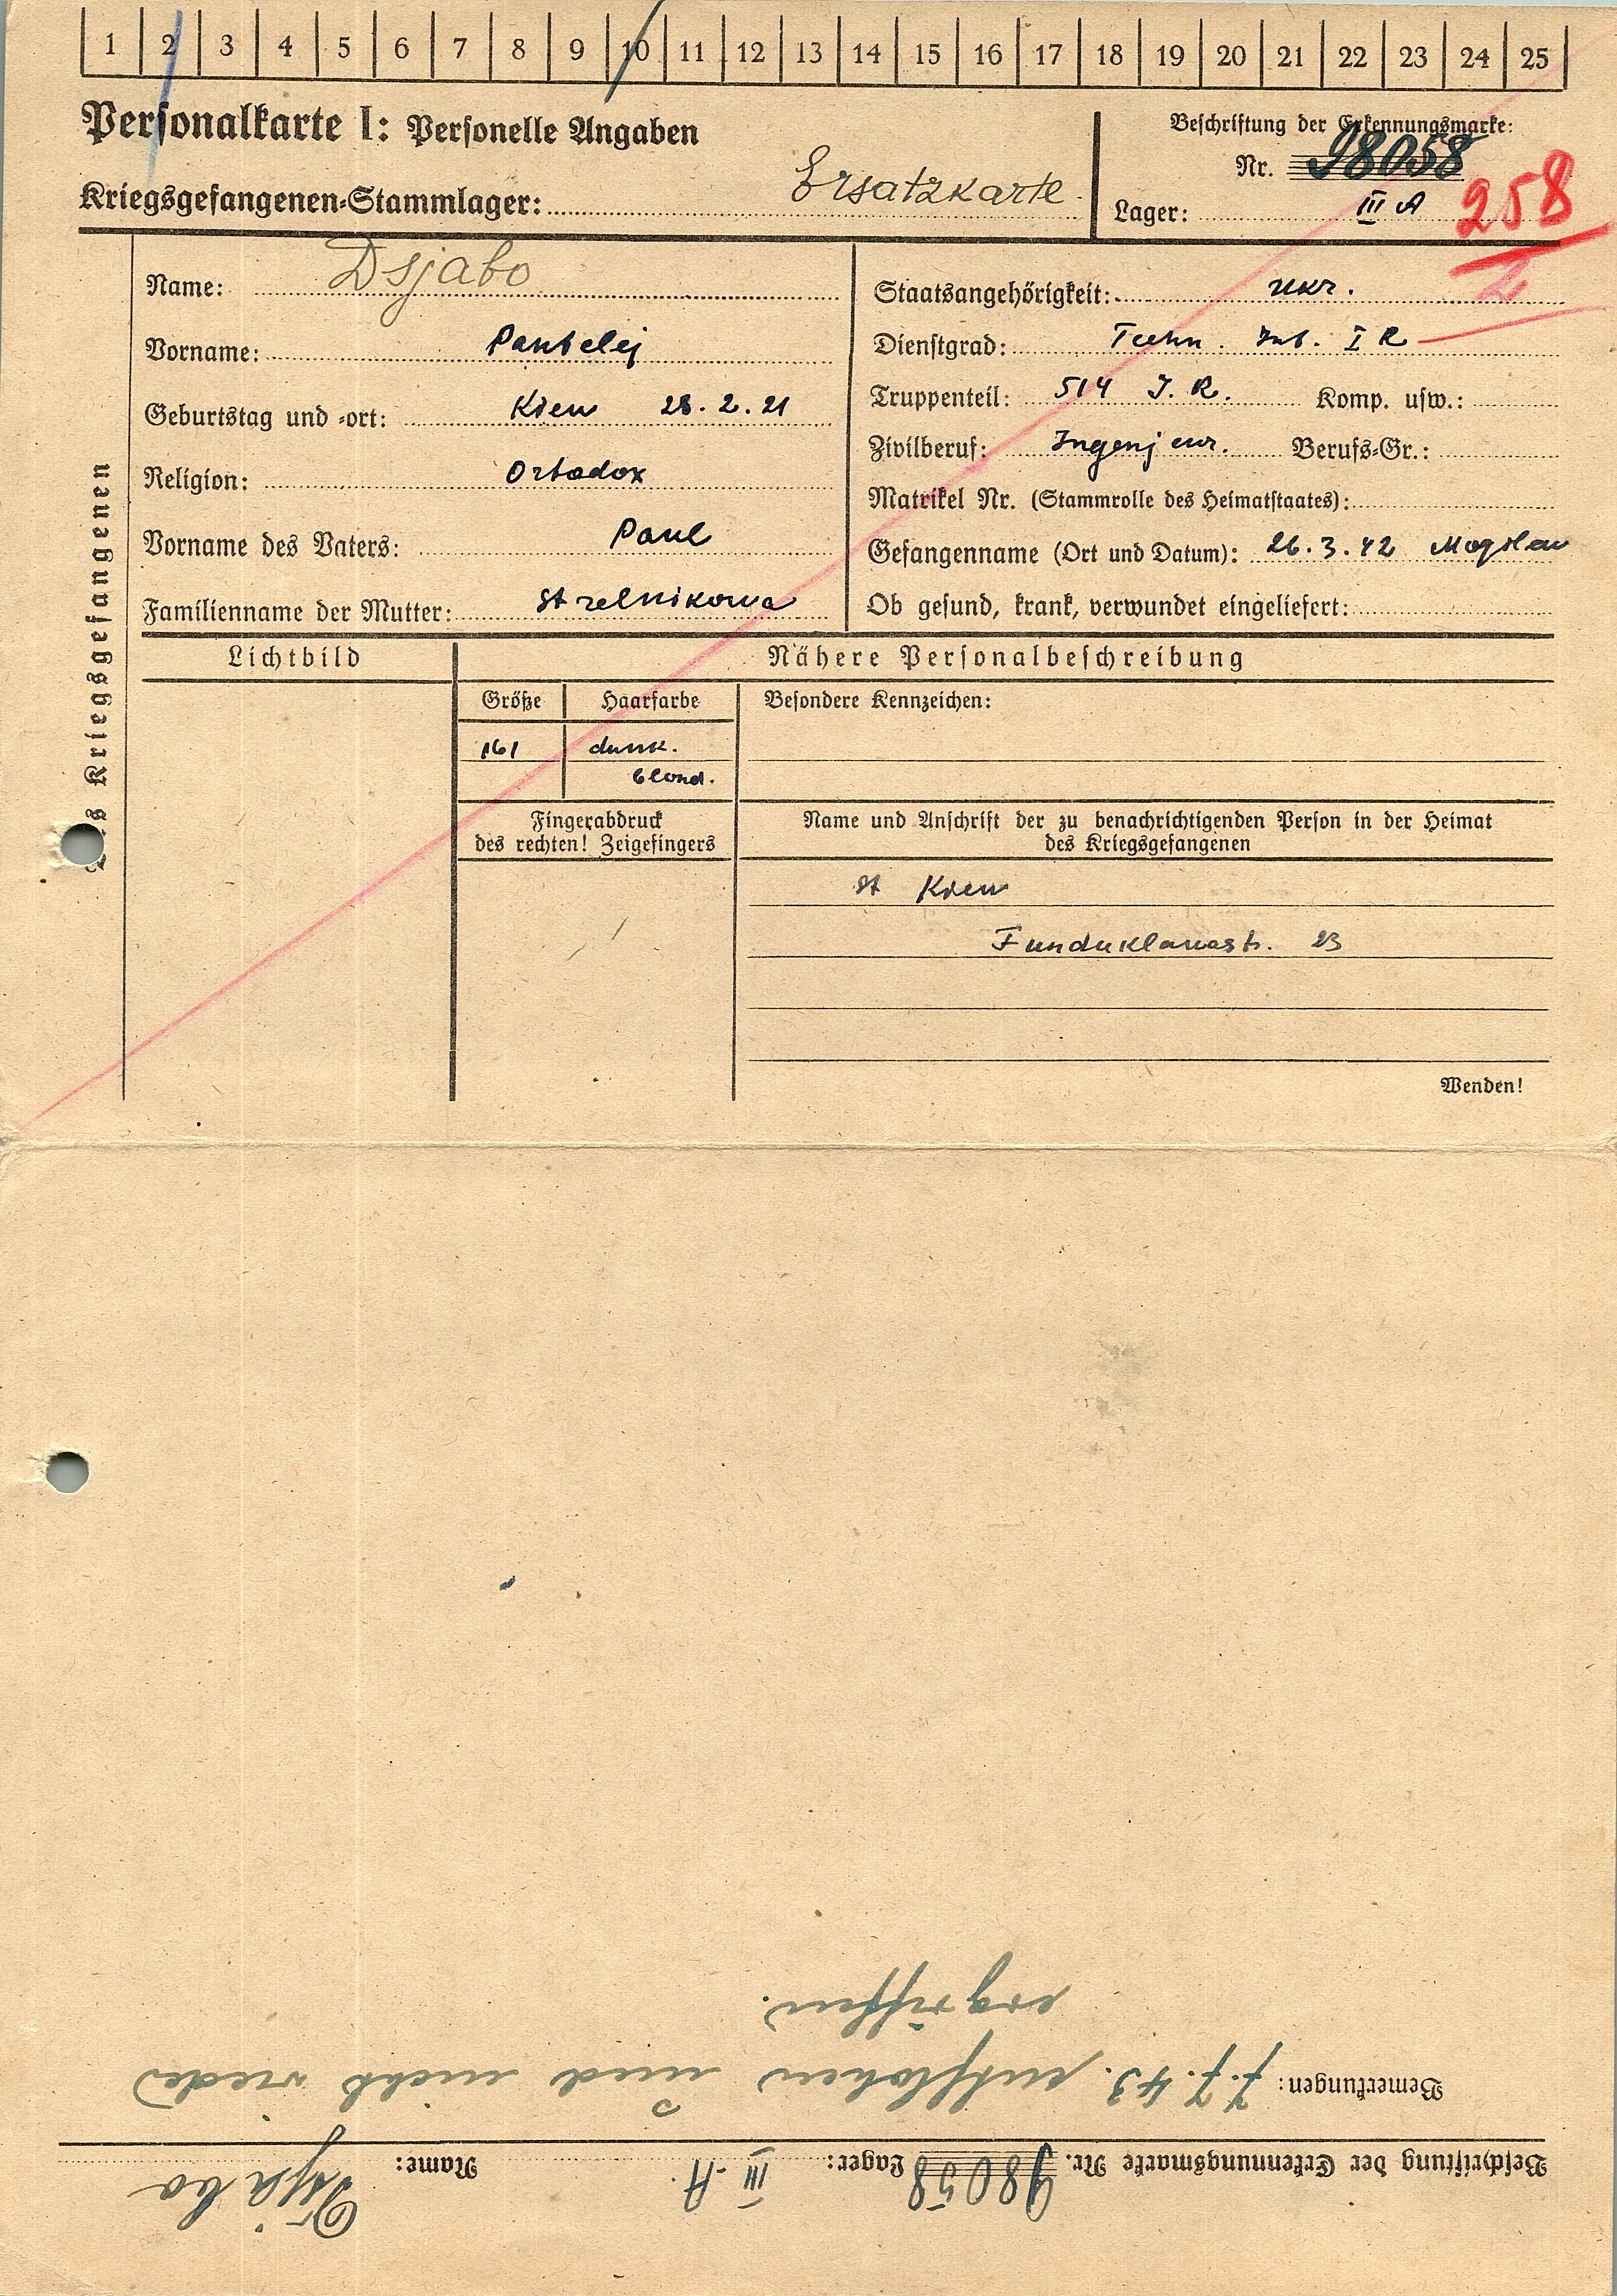 1 2 3 4 5 6 7 8 9 10 11 12 13 14 15 16 17 18 19 20 21 22 23 24 25
Personalkarte I: Personelle Angaben
Kriegsgefangenen-Stammlager: Ersatzkarte
Beschriftung der Erkennungsmarke:
Nr. 98058
Lager: III A
258
Des Kriegsgefangenen
Name: Dsjabo
Vorname: Pantelej
Geburtstag und -ort: Kiew 28.2.21
Religion: Ortodox
Vorname des Vaters: Paul
Familienname der Mutter: Strelnikowa
Staatsangehörigkeit: ukr.
Dienstgrad: Techn. Int. I R
Truppenteil: 514 I.R. Komp. usw.:
Zivilberuf: Ingenjeur. Berufs-Gr.:
Matrikel Nr. (Stammrolle des Heimatstaates):
Gefangenname (Ort und Datum): 26.3.42 Mogilew
Ob gesund, krank, verwundet eingeliefert:
Lichtbild
Nähere Personalbeschreibung
Größe Haarfarbe Besondere Kennzeichen:
161 dunk.
blond.
Fingerabdruck
des rechten! Zeigefingers
Name und Anschrift der zu benachrichtigenden Person in der Heimat
des Kriegsgefangenen
St Kiew
Funduklawastr. 23
Wenden!
Beschriftung der Erkennungsmarke Nr. 98058 Lager: III A. Name: Dsjabo
Bemerkungen: 7.7.43. entflohen und nicht wieder
ergriffen.